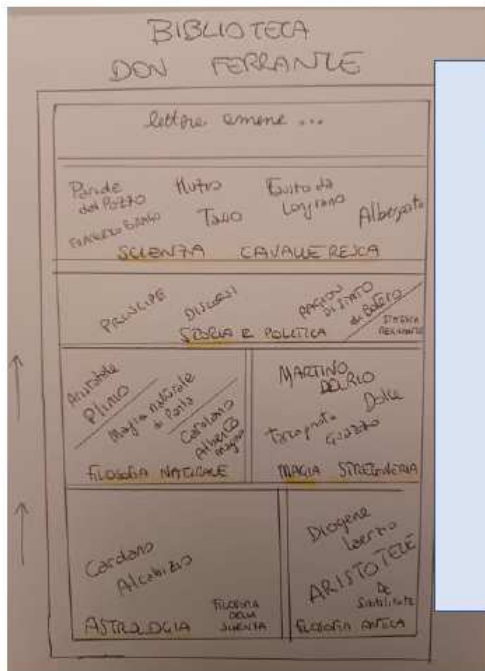 BIBLIOTECA
DON FERRANTE
lettere amene ...
Paride
dal Pozzo
Mutio
Tasso
Longiano
Albergato
SCIENZA CAVALLERESCA
PRINCIPE
DISCORSI
RAGION
DI STATO
di Botero
STORIA E POLITICA
Aristotele
Plinio
Magia naturale
di Porta
Cardano
Alberto
magno
FILOSOFIA NATURALE
MARTINO
DELRIO
Dolce
MAGIA STREGONERIA
Cardano
Alcabizio
ASTROLOGIA
FILOSOFIA
DELLA
SCIENZA
Diogene
Laerzio
ARISTOTELE
De
FILOSOFIA ANTICA